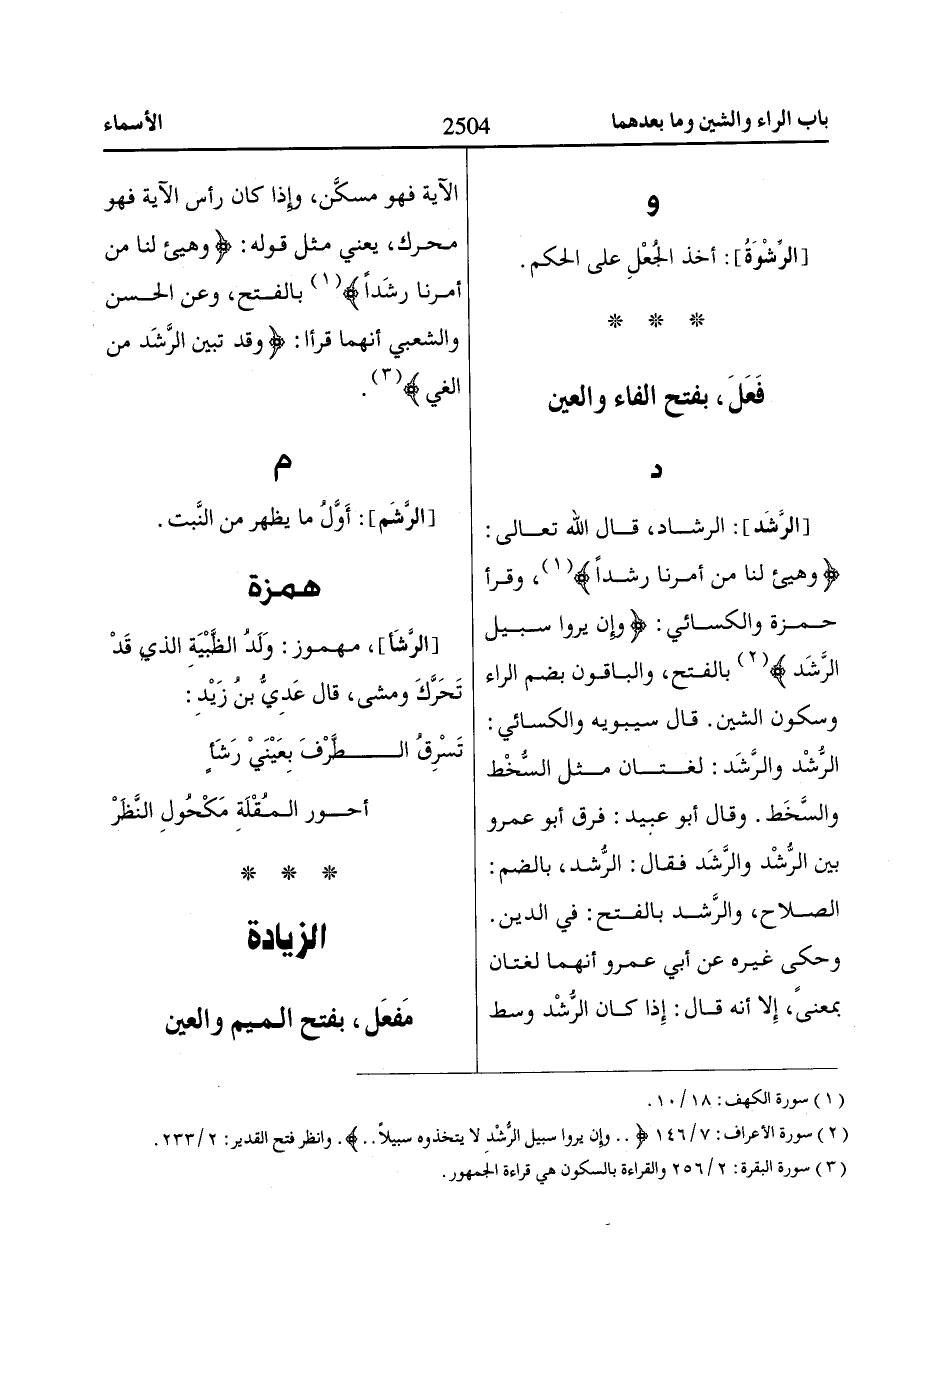 باب الراء والشين وما بعدهما
2504
الأسماء
و
[الرِّشْوَةُ]: أخذ الجُعْلِ على الحكم.
* * *
فَعَلَ، بفتح الفاء والعين
د
[الرَّشَد]: الرشاد، قال الله تعالى:
﴿وهيئ لنا من أمرنا رشداً﴾(١)، وقرأ
حمزة والكسائي: ﴿وإن يروا سبيل
الرَّشَد﴾(٢) بالفتح، والباقون بضم الراء
وسكون الشين. قال سيبويه والكسائي:
الرُّشْد والرَّشَد: لغتان مثل السُّخْط
والسَّخَط. وقال أبو عبيد: فرق أبو عمرو
بين الرُّشْد والرَّشَد فقال: الرُّشد، بالضم:
الصلاح، والرَّشد بالفتح: في الدين.
وحكى غيره عن أبي عمرو أنهما لغتان
بمعنىً، إلا أنه قال: إذا كان الرُّشْد وسط
الآية فهو مسكَّن، وإذا كان رأس الآية فهو
محرك، يعني مثل قوله: ﴿وهيئ لنا من
أمرنا رشَداً﴾(١) بالفتح، وعن الحسن
والشعبي أنهما قرأا: ﴿وقد تبين الرَّشَد من
الغي﴾(٣).
م
[الرَّشَم]: أَوَّلُ ما يظهر من النَّبت.
همزة
[الرَّشَأ]، مهموز: وَلَدُ الظَّبْيَةِ الذي قَدْ
تَحَرَّكَ ومشى، قال عَدِيُّ بنُ زَيْد:
تَسْرِقُ الطَّرْفَ بِعَيْنَيْ رَشَأٍ
أحور المُقْلَةِ مَكْحُولِ النَّظَرْ
* * *
الزيادة
مَفعَل، بفتح الميم والعين
(١) سورة الكهف: ١٨/١٠.
(٢) سورة الأعراف: ٧/١٤٦ ﴿.. وإن يروا سبيل الرُّشْد لا يتخذوه سبيلاً..﴾. وانظر فتح القدير: ٢/٢٣٣.
(٣) سورة البقرة: ٢/٢٥٦ والقراءة بالسكون هي قراءة الجمهور.